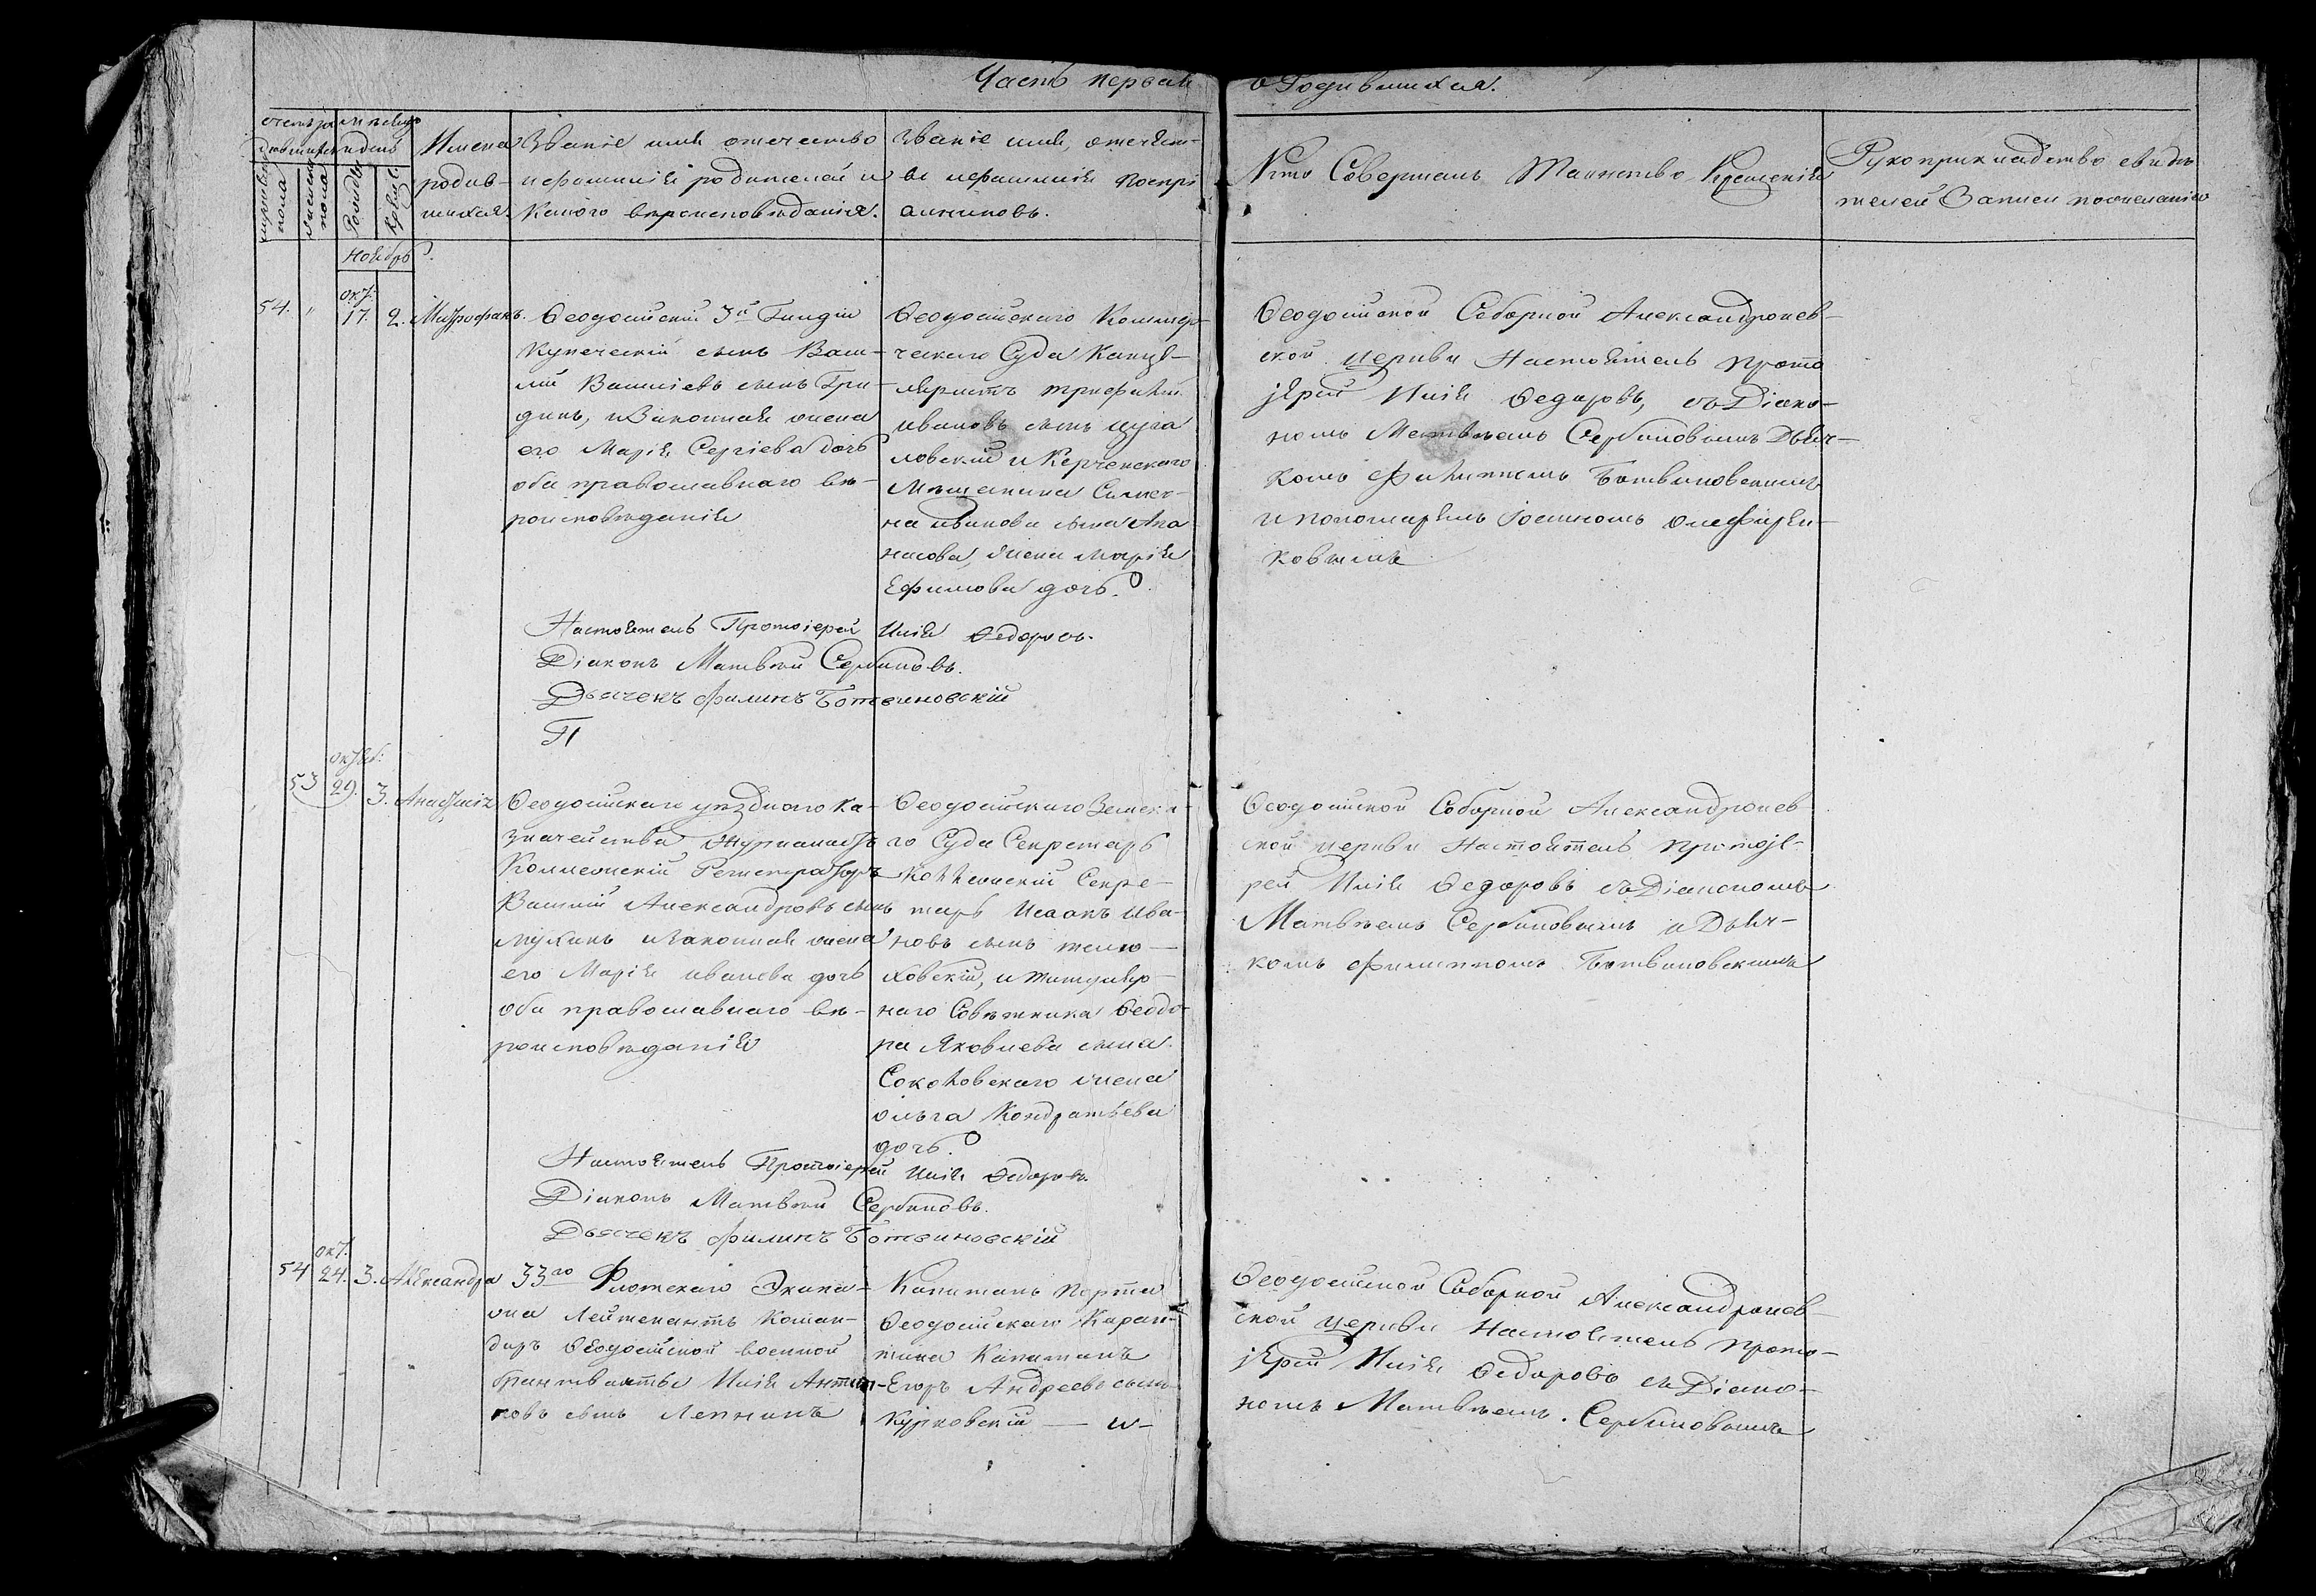 Часть первая о Родившихся.
Имена
родив-
шихся.
Званіе имя отчество
и фамилія родителей и
какого вѣроисповѣданія.
Званіе имя, отечест-
во и фамилія воспрі
анниковъ.
Кто Совершалъ Таинство Крещенія
Рукоприкладство свидѣ
телей Записи по желанію
мужеска
пола
женска
пола
Рожде
Крещ
Ноябрь.
54. " окт: 17. 2. Митрофанъ.
Ѳеодосійскій 3й Гилдіи
Купеческій сынъ Васи-
лій Василіевъ сынъ Гри-
динъ, и Законная жена
его Марія Сергіева дочь
оба православнаго вѣ-
роисповѣданія
Ѳеодосійскаго Коммер-
ческаго Суда Канце-
ляристъ Трифилій
Ивановъ сынъ
ловскій и Керченскаго
Мѣщанина
на Иванова сына Апа
насова, жена Марія
Ефимова дочь.
Ѳеодосійской Соборной Александронев-
ской церкви Настоятель прото
јерей Илія Ѳедоровъ, съ Діако-
номъ Матвѣемъ Сербиновымъ Дьяч-
комъ Филиппомъ Ботвиновскимъ
и пономаремъ
ковымъ
Настоятель Протоіерей Илія Ѳедоровъ.
Діаконъ Матвѣй Сербиновъ.
Дьячекъ Филипъ Ботвиновскій
П
53 октяб: 29. 3. Анастасія
Ѳеодосійскаго уѣзднаго ка-
значейства Журналистъ
Коллежскій Регистраторъ
Василій Александровъ сынъ
Мухинъ и Законная жена
его Марія Иванова дочь
оба православнаго вѣ-
роисповѣданія
Ѳеодосійскаго Земска-
го Суда Секретарь
Коллежскій Секре-
тарь Исаакъ Ива-
новъ сынъ
ховскій, и титуляр-
наго Совѣтника Ѳеодо-
ра Яковлева сына
Соколовскаго жена
Ольга Кондратьева
дочь.
Ѳеодосійской Соборной Александронев
ской церкви Настоятель протоје-
рей Илія Ѳедоровъ съ Діакономъ
Матвѣемъ Сербиновымъ и Дьяч-
комъ Филиппомъ Ботвиновскимъ
Настоятель Протоіерей Илія Ѳедоровъ.
Діаконъ Матвѣй Сербиновъ.
Дьячекъ Филипъ Ботвиновскій
54 окт. 24. 3. Александра
33го Флотскаго Экипа-
жа Лейтенантъ Коман-
диръ Ѳеодосійской военной
брантвахты Илія Антип-
повъ сынъ Лепнинъ
Капитанъ порта
Ѳеодосійскаго Каран-
тина Капитанъ
Егоръ Андреевъ сынъ
Курковскій — и-
Ѳеодосійской Соборной Александронев-
ской церкви Настоятель прото-
јерей Илія Ѳедоровъ съ Діако-
номъ Матвѣемъ. Сербиновымъ